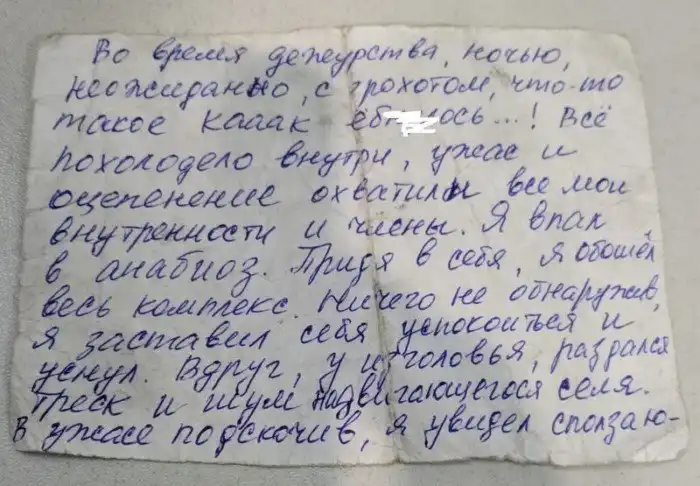 Во время дежурства, ночью,
неожиданно, с грохотом, что-то
такое кааак ёб осъ...! Всё
похолодело внутри, ужас и
оцепенение охватили все мои
внутренности и члены. Я впал
в анабиоз. Придя в себя, я обошёл
весь комплекс. Ничего не обнаружив,
я заставил себя успокоиться и
уснул. Вдруг, у изголовья, раздался
треск и шум надвигающегося селя.
В ужасе подскочив, я увидел сползаю-